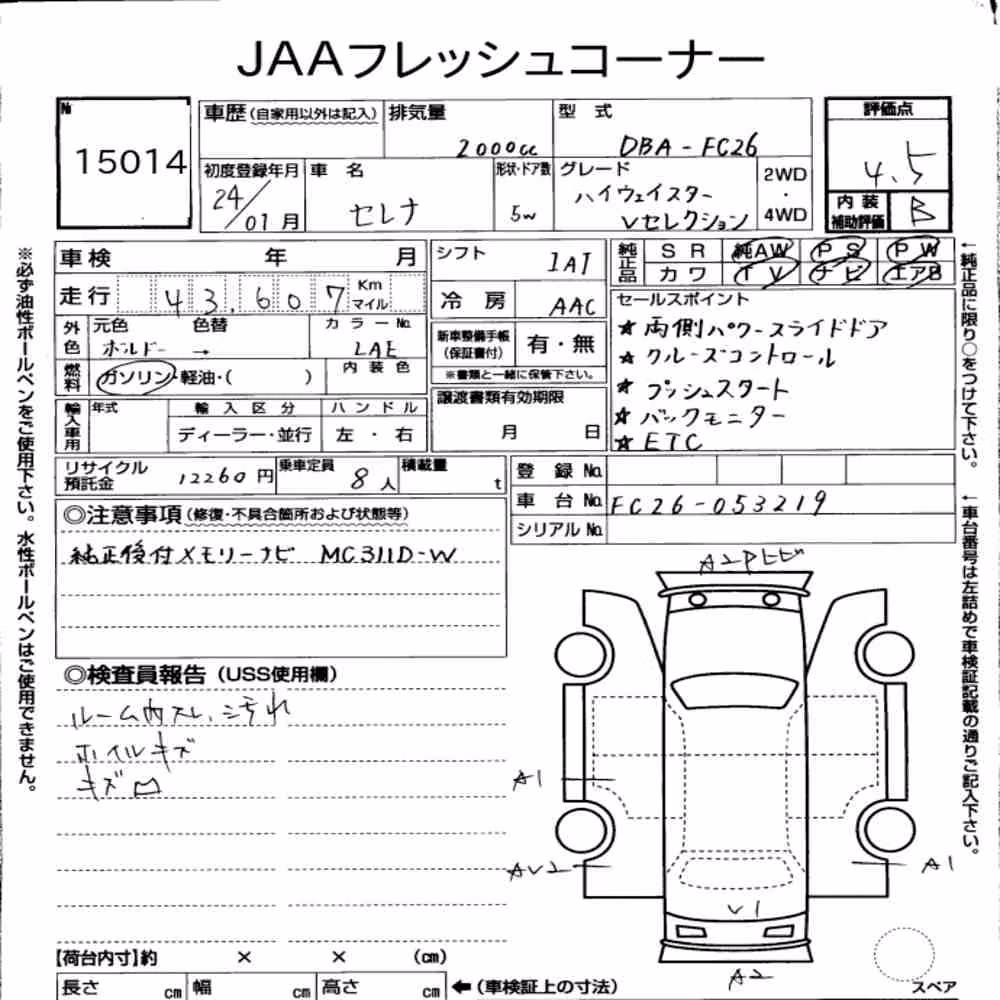 JAAフレッシュコーナー
№ 15014
車歴(自家用以外は記入)
排気量 2000cc
型式 DBA-FC26
評価点 4.5
初度登録年月 24/01月
車名 セレナ
形状・ドア数 5W
グレード ハイウェイスター Vセレクション
2WD・4WD
内装補助評価 B
車検 年 月
シフト IAT
純正品 SR 純AW PS PW
カワ TV ナビ エアB
走行 43,607 Km マイル
冷房 AAC
セールスポイント
★両側パワースライドドア
★クルーズコントロール
★プッシュスタート
★バックモニター
★ETC
外色 元色 ホルドー 色替 → カラーNo. LAE
新車整備手帳(保証書付) 有・無
※書類と一緒に保管下さい。
燃料 ガソリン・軽油・( ) 内装色
譲渡書類有効期限 月 日
輸入車用 年式 輸入区分 ハンドル
ディーラー・並行 左・右
リサイクル預託金 12260円
乗車定員 8人
積載量 t
登録No.
車台No. FC26-053219
シリアルNo.
◎注意事項(修復・不具合箇所および状態等)
純正後付メモリーナビ MC311D-W
◎検査員報告(USS使用欄)
ルーム内スレ、汚れ
ホイルキズ
キズ凹
A2
A1
A1
V1
A2
【荷台内寸】約 × × (cm)
長さ cm 幅 cm 高さ cm ←(車検証上の寸法)
スペア
※必ず油性ボールペンをご使用下さい。水性ボールペンはご使用できません。
←純正品に限り○をつけて下さい。
←車台番号は左詰めで車検証記載の通りご記入下さい。